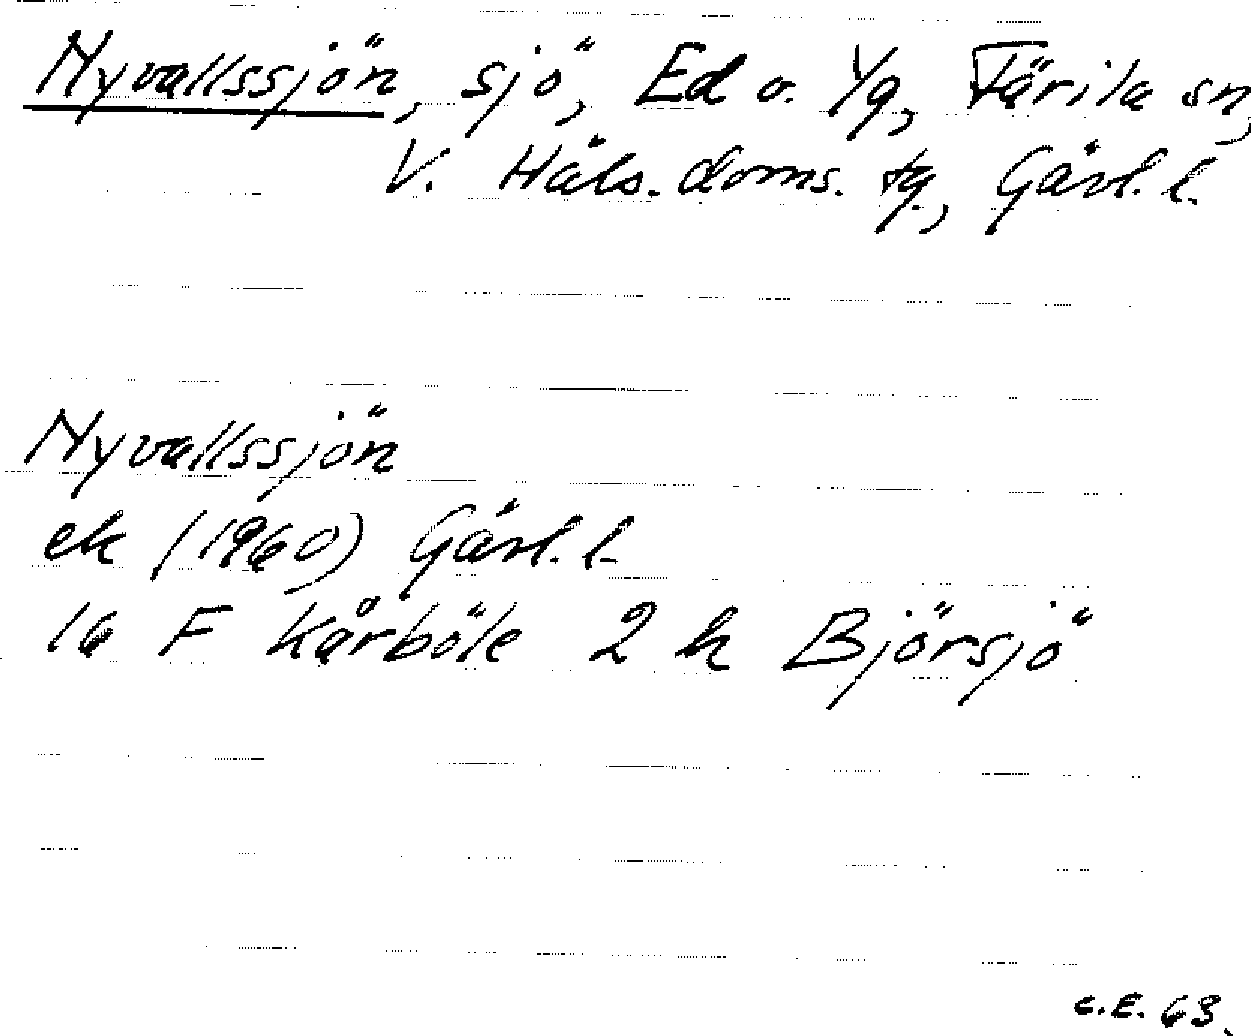 Nyvallssjön, sjö, Ed o. Yg, Färila sn,
V. Häls. doms. tg, Gävl. l.
Nyvallssjön
ek (1960) Gävl. l.
16 F Kårböle 2 h Björsjö
C.E. 63.